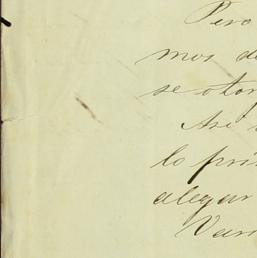 Pero
mos de
se otor
Asi
lo prin
alegar
Vari